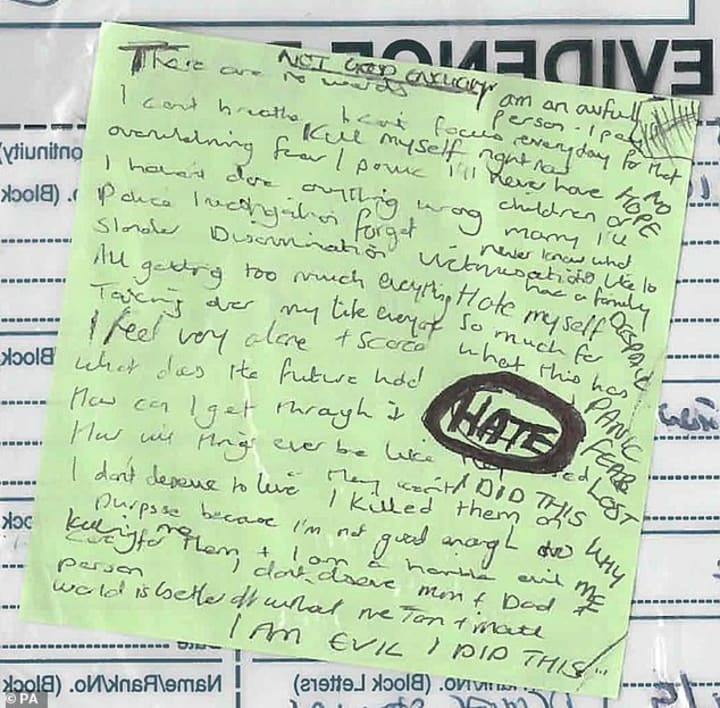 EVIDENCE
NOT GOOD ENOUGH
There are no words
I can't breathe I can't focus
Kill myself right now
overwhelming fear / panic
I haven't done anything wrong
Police investigation forget
Slander Discrimination Victimisation
All getting too much everything
Taking over my life everyday
I feel very alone + scared
What does the future hold
How can I get through it
How will things ever be like they
I don't deserve to live
I Killed them on
purpose because I'm not good enough
to care for them + I am a horrible evil
person I don't deserve mum + Dad
world is better off without me
I AM EVIL I DID THIS
am an awful
person - I pay
everyday for that
I'll never have
children or
marry I'll
never know what
it's like to
have a family
Hate myself
So much for
what this has
HATE
I DID THIS
WHY
ME
Killing me
NO
HOPE
DESPAIR
PANIC
FEAR
LOST
Continuity
No. (Block
Block
Block
Block
Date
Name/Rank/No. (Block
Rank/No. (Block Letters)
© PA